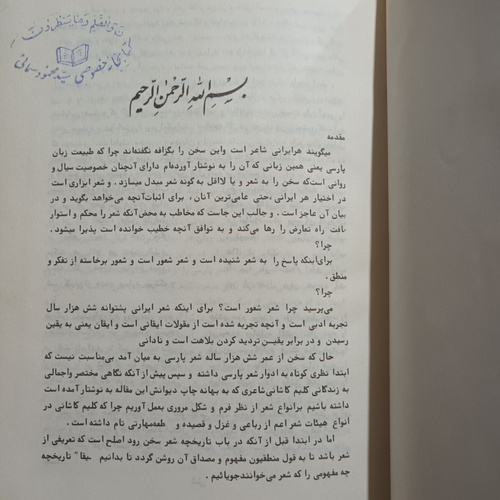 ن والقلم وما یسطرون
کتابخانه خصوصی سید محمود سامانی
بسم الله الرحمن الرحیم
مقدمه
میگویند هرایرانی شاعر است واین سخن را بگزافه نگفته‌اند چرا که طبیعت زبان
پارسی یعنی همین زبانی که آن را به نوشتار آورده‌ام دارای آنچنان خصوصیت سیال و
روانی است‌که سخن را به شعر و یا لااقل به گونه شعر مبدل میسازد . و شعر ابزاری است
در اختیار هر ایرانی ،حتی عامی‌ترین آنان ، برای اثبات‌آنچه می‌خواهد بگوید و در
بیان آن عاجز است . و جالب این جاست که مخاطب به محض‌آنکه شعر را محکم و استوار
یافت راه تعارض را رها می‌کند و به توافق آنچه خطیب خوانده است پذیرا میشود .
چرا؟
برای‌اینکه پاسخ را به شعر شنیده است و شعر شعور است و شعور برخاسته از تفکر و
منطق .
چرا؟
می‌پرسید چرا شعر شعور است؟ برای اینکه شعر ایرانی پشتوانه شش هزار سال
تجربه ادبی است و آنچه تجربه شده است از مقولات ایقانی است و ایقان یعنی به یقین
رسیدن و در برابر یقیـن تردید کردن بلاهت است و نادانی
حال که سخن از عمر شش هزار ساله شعر پارسی به میان آمد بی‌مناسبت نیست که
ابتدا نظری کوتاه به ادوار شعر پارسی داشته و سپس پیش از آنکه نگاهی مختصر واجمالی
به زندگانی کلیم کاشانی‌شاعری که به بهانه چاپ دیوانش این مقاله به نوشتار آمده است
داشته باشیم برانواع شعر از نظر فرم و شکل مروری بعمل آوریم چرا که کلیم کاشانی در
انواع هیئات شعر اعم از رباعی و غزل و قصیده و طعه‌مهارتی تام داشته است .
اما در ابتدا قبل از آنکه در باب تاریخچه شعر سخن رود اصلح است که تعریفی از
شعر باشد تا به قول منطقیون مفهوم و مصداق آن روشن گردد تا بدانیم یقا" تاریخچه
چه مفهومی را که شعر می‌خوانندجویائیم .